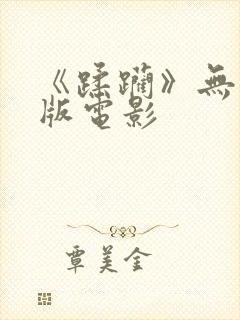 《蹂躏》無
版電影
覃美金